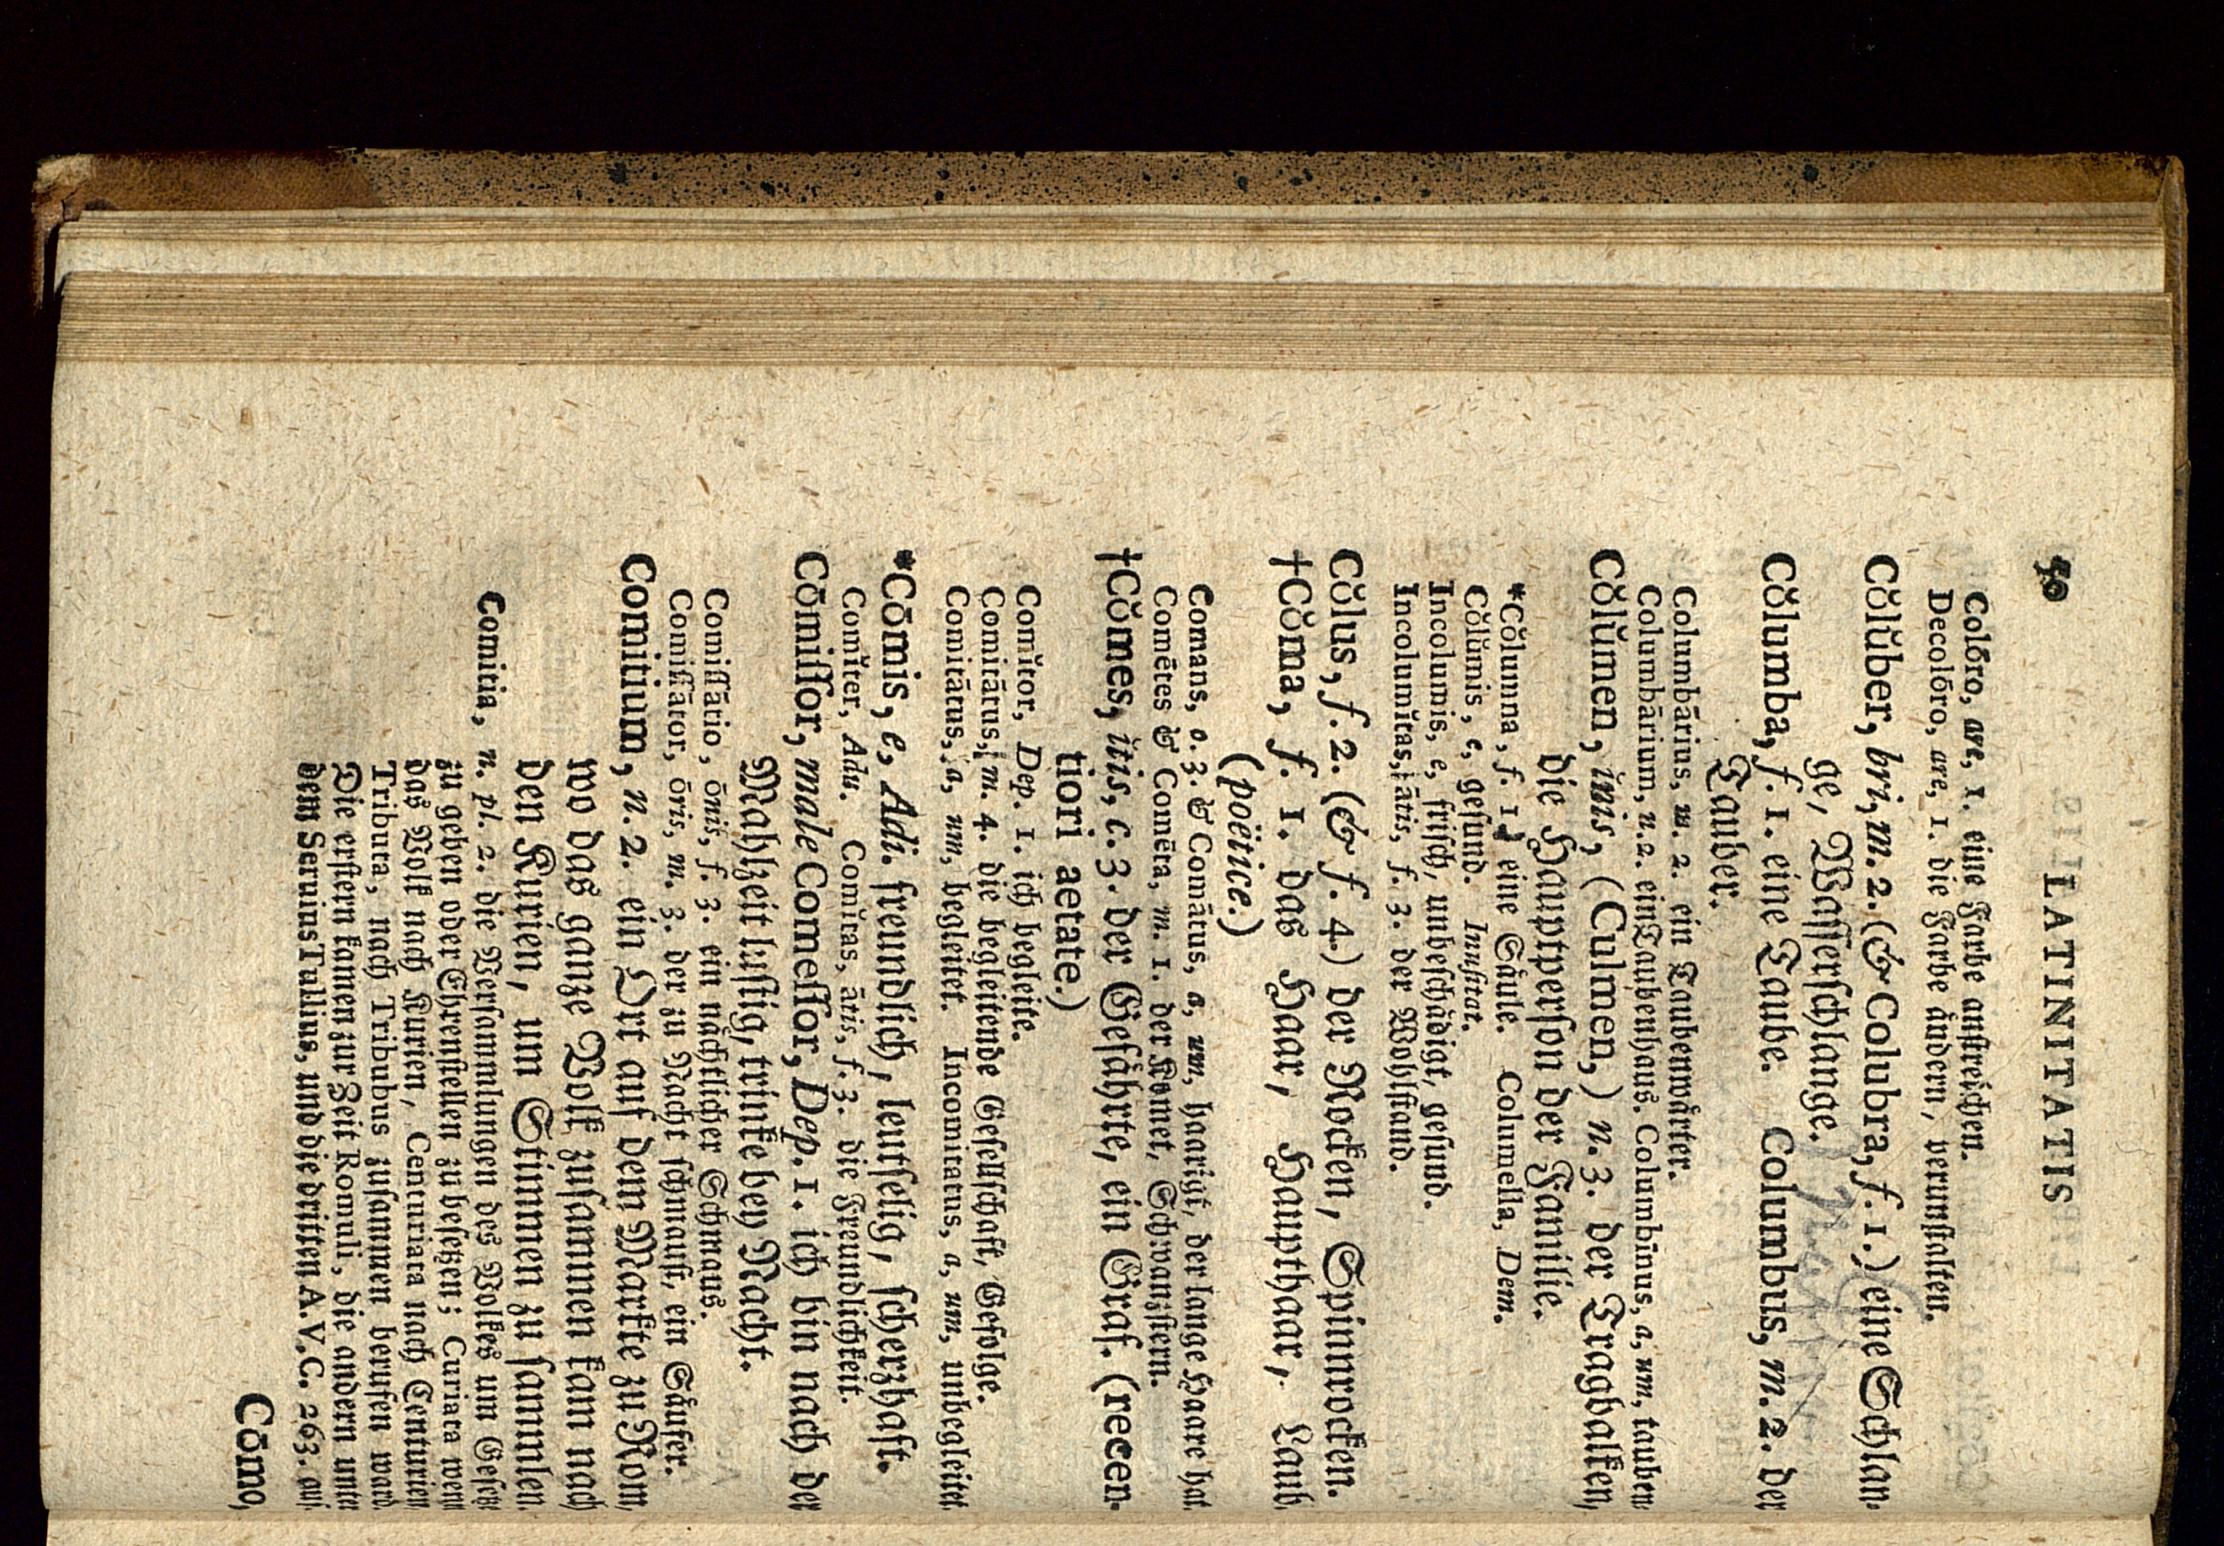 50 LATINITATIS
Colōro, are, 1. eine Farbe anſtreichen.
Decolōro, are, 1. die Farbe åndern, verunſtalten.
Cŏlŭber, bri, m. 2. (& Colubra, f. 1.) eine Schlan-
ge, Waſſerſchlange.
Cŏlumba, f. 1. eine Taube. Columbus, m. 2. der
Tauber.
Columbārius, m. 2. ein Taubenwårter.
Columbārium, n. 2. ein Taubenhaus. Columbīnus, a, um, tauben
Cŏlŭmen, ĭnis, (Culmen,) n. 3. der Tragbalken,
die Hauptperſon der Familie.
*Cŏlumna, f. 1. eine Såule. Columella, Dem.
Cŏlŭmis, e, geſund. Inuſitat.
Incolumis, e, friſch, unbeſchådigt, geſund.
Incolumĭtas, ātis, f. 3. der Wohlſtand.
Cŏlus, f. 2. (& f. 4.) der Rocken, Spinnrocken.
†Cŏma, f. 1. das Haar, Haupthaar, Laub
(poëtice.)
Comans, o. 3. & Comātus, a, um, haarigt, der lange Haare hat
Comētes & Comēta, m. 1. der Komet, Schwanzſtern.
†Cŏmes, ĭtis, c. 3. der Gefåhrte, ein Graf. (recen-
tiori aetate.)
Comĭtor, Dep. 1. ich begleite.
Comitātus, m. 4. die begleitende Geſellſchaft, Gefolge.
Comitātus, a, um, begleitet. Incomitatus, a, um, unbegleitet
*Cōmis, e, Adi. freundlich, leutſelig, ſcherzhaft.
Comĭter, Adu. Comĭtas, ātis, f. 3. die Freundlichkeit.
Cōmiſſor, male Comeſſor, Dep. 1. ich bin nach der
Mahlzeit luſtig, trinke bey Nacht.
Comiſſātio, ōnis, f. 3. ein nåchtlicher Schmaus.
Comiſſātor, ōris, m. 3. der zu Nacht ſchmauſt, ein Såufer.
Comitium, n. 2. ein Ort auf dem Markte zu Rom,
wo das ganze Volk zuſammen kam nach
den Kurien, um Stimmen zu ſammlen.
Comitia, n. pl. 2. die Verſammlungen des Volkes um Geſetz
zu geben oder Ehrenſtellen zu beſetzen; Curiata wenn
das Volk nach Kurien, Centuriata nach Centurien
Tributa, nach Tribubus zuſammen berufen ward
Die erſtern kamen zur Zeit Romuli, die andern unter
dem Seruius Tullius, und die dritten A. V. C. 263. auf
Cōmo,